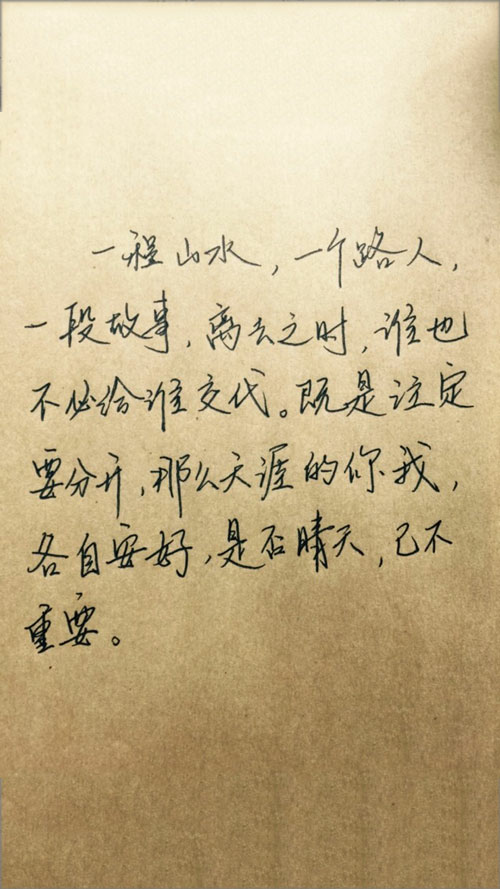 一程山水，一个路人，
一段故事，离去之时，谁也
不必给谁交代。既是注定
要分开，那么天涯的你我，
各自安好，是否晴天，已不
重要。